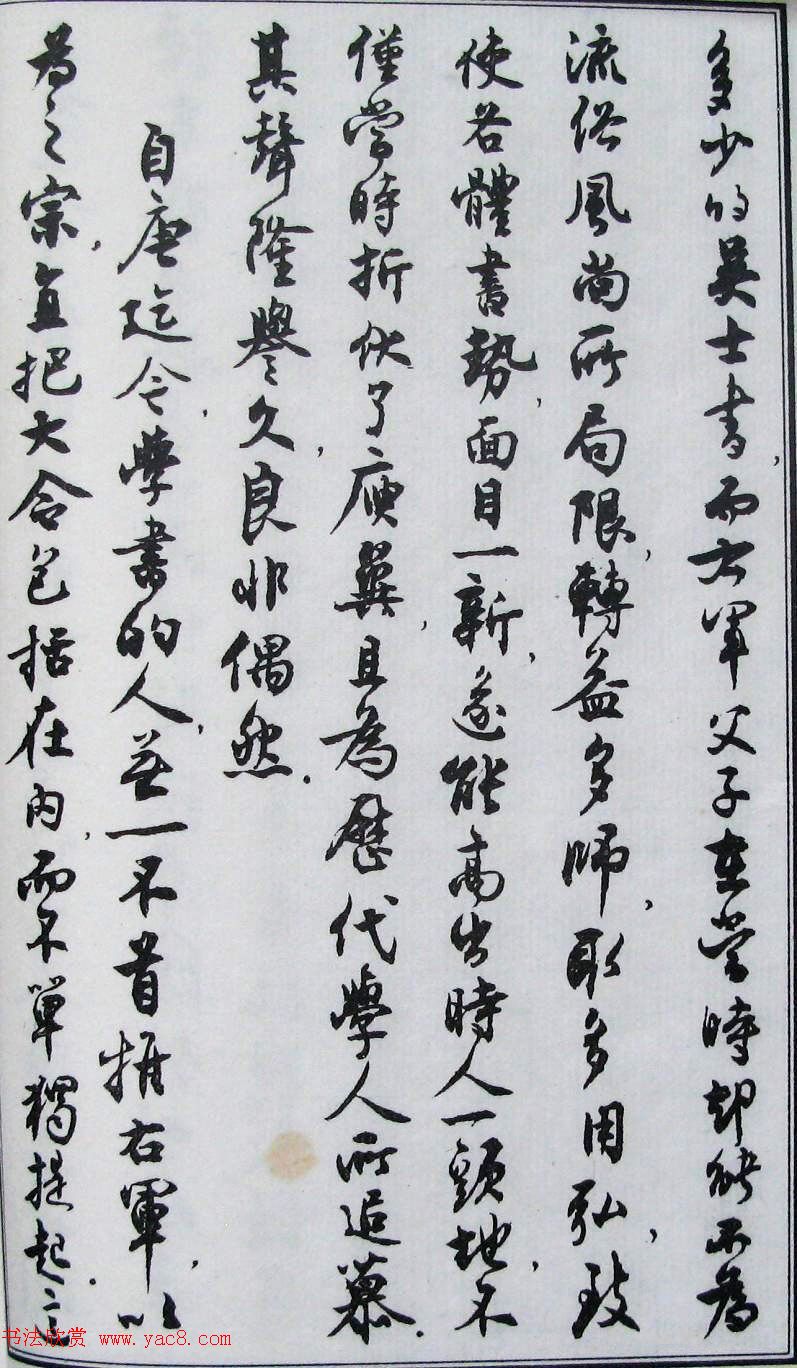 多少的吳士書，而右軍父子在當時却能不為
流俗風尚所局限，轉益多師，取多用弘，致
使若體書勢，面目一新，遂能高出時人一頭地，不
僅當時折伏了庾翼，且為歷代學人所追慕．
其聲隆譽久，良非偶然．
自唐迄今，學書的人，無一不首推右軍，以
為之宗，直把大令包括在內，而不單獨提起．二王
书法欣赏 www.yac8.com